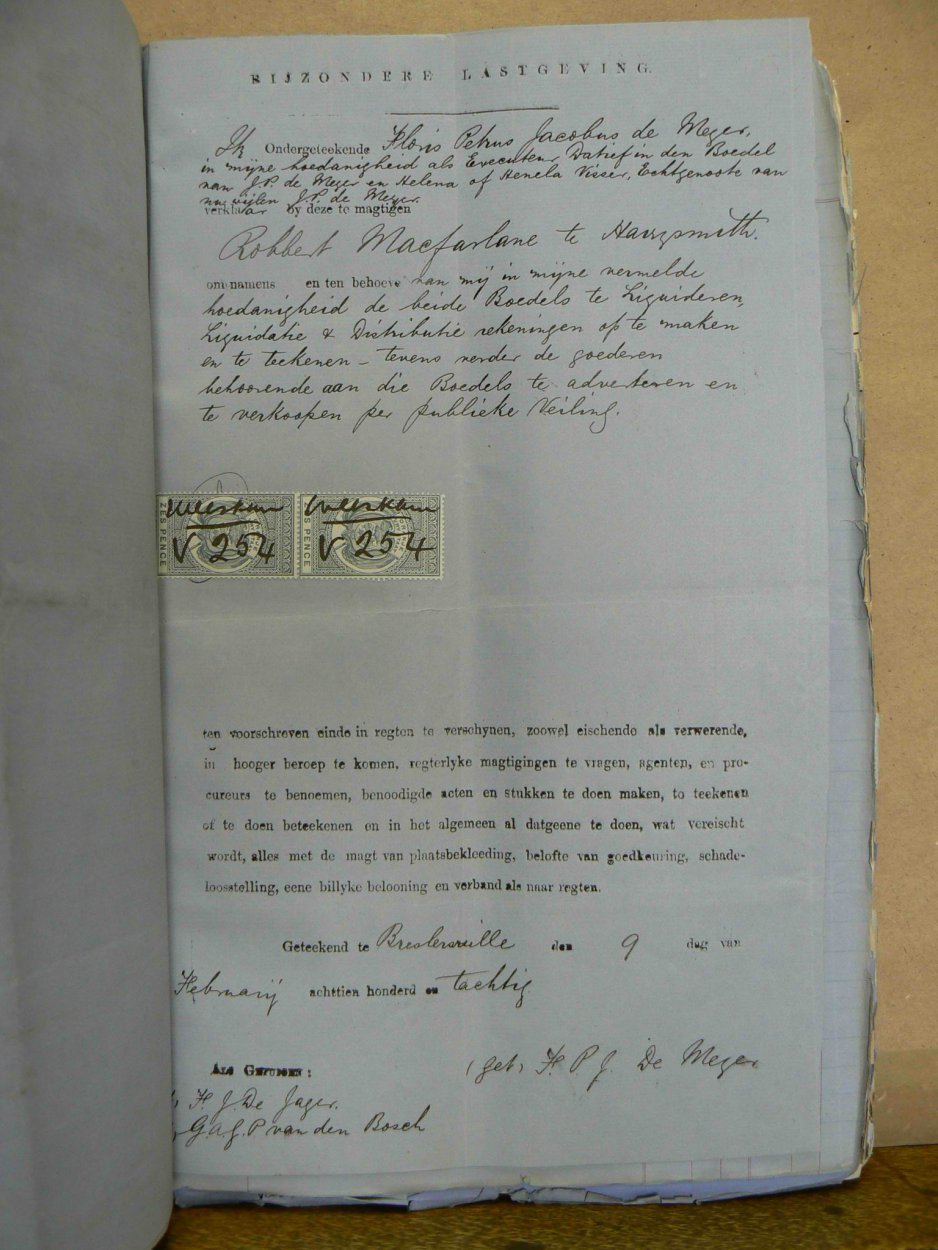 BIJZONDERE LASTGEVING.
Ik Ondergeteekende Floris Petrus Jacobus de Meyer,
in mijne hoedanigheid als Executeur Datief in den Boedel
van J.P. de Meyer en Helena of Henela Visser, Echtgenoote van
nu wijlen J.P. de Meyer.
verklaar by deze te magtigen
Robbert Macfarlane te Harrysmith.
om namens en ten behoeve van mij in mijne vermelde
hoedanigheid de beide Boedels te Liquideren,
Liquidatie & Distributie rekeningen op te maken
en te teekenen – tevens verder de goederen
behoorende aan die Boedels te adverteren en
te verkoopen per publieke Veiling.
ZES PENCE V 254 ZES PENCE V 254
ten voorschreven einde in regten te verschynen, zoowel eischende als verwerende,
in hooger beroep te komen, regterlyke magtigingen te vragen, agenten, en pro-
cureurs te benoemen, benoodigde acten en stukken te doen maken, to teekenen
of te doen beteekenen en in het algemeen al datgeene te doen, wat vereischt
wordt, alles met de magt van plaatsbekleeding, belofte van goedkeuring, schade-
loosstelling, eene billyke belooning en verband als naar regten.
Geteekend te Breslersville den 9 dag van
Februarij achttien honderd en tachtig
(get) F. P. J. De Meyer
ALS GETUIGEN:
F. J. De Jager.
G.A.J.P van den Bosch